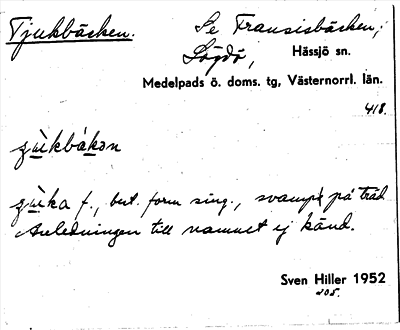 Tjukbäcken. Se Fransisbäcken,
Lögdö, Hässjö sn.
Medelpads ö. doms. tg, Västernorrl. län.
418.
zùkbákən
zùka f., best. form sing., svamp på träd
Anledningen till namnet ej känd.
Sven Hiller 1952
205.